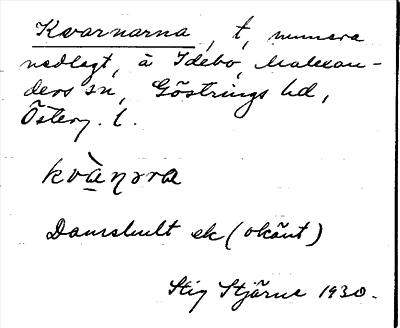 Kvarnarna, t, numera
nedlagt, å Idebo, Malexan-
ders sn, Göstrings hd,
Österg. l.
kvà̱ŋɔra
Damshult ek (okänt)
Stig Stjärne 1930.